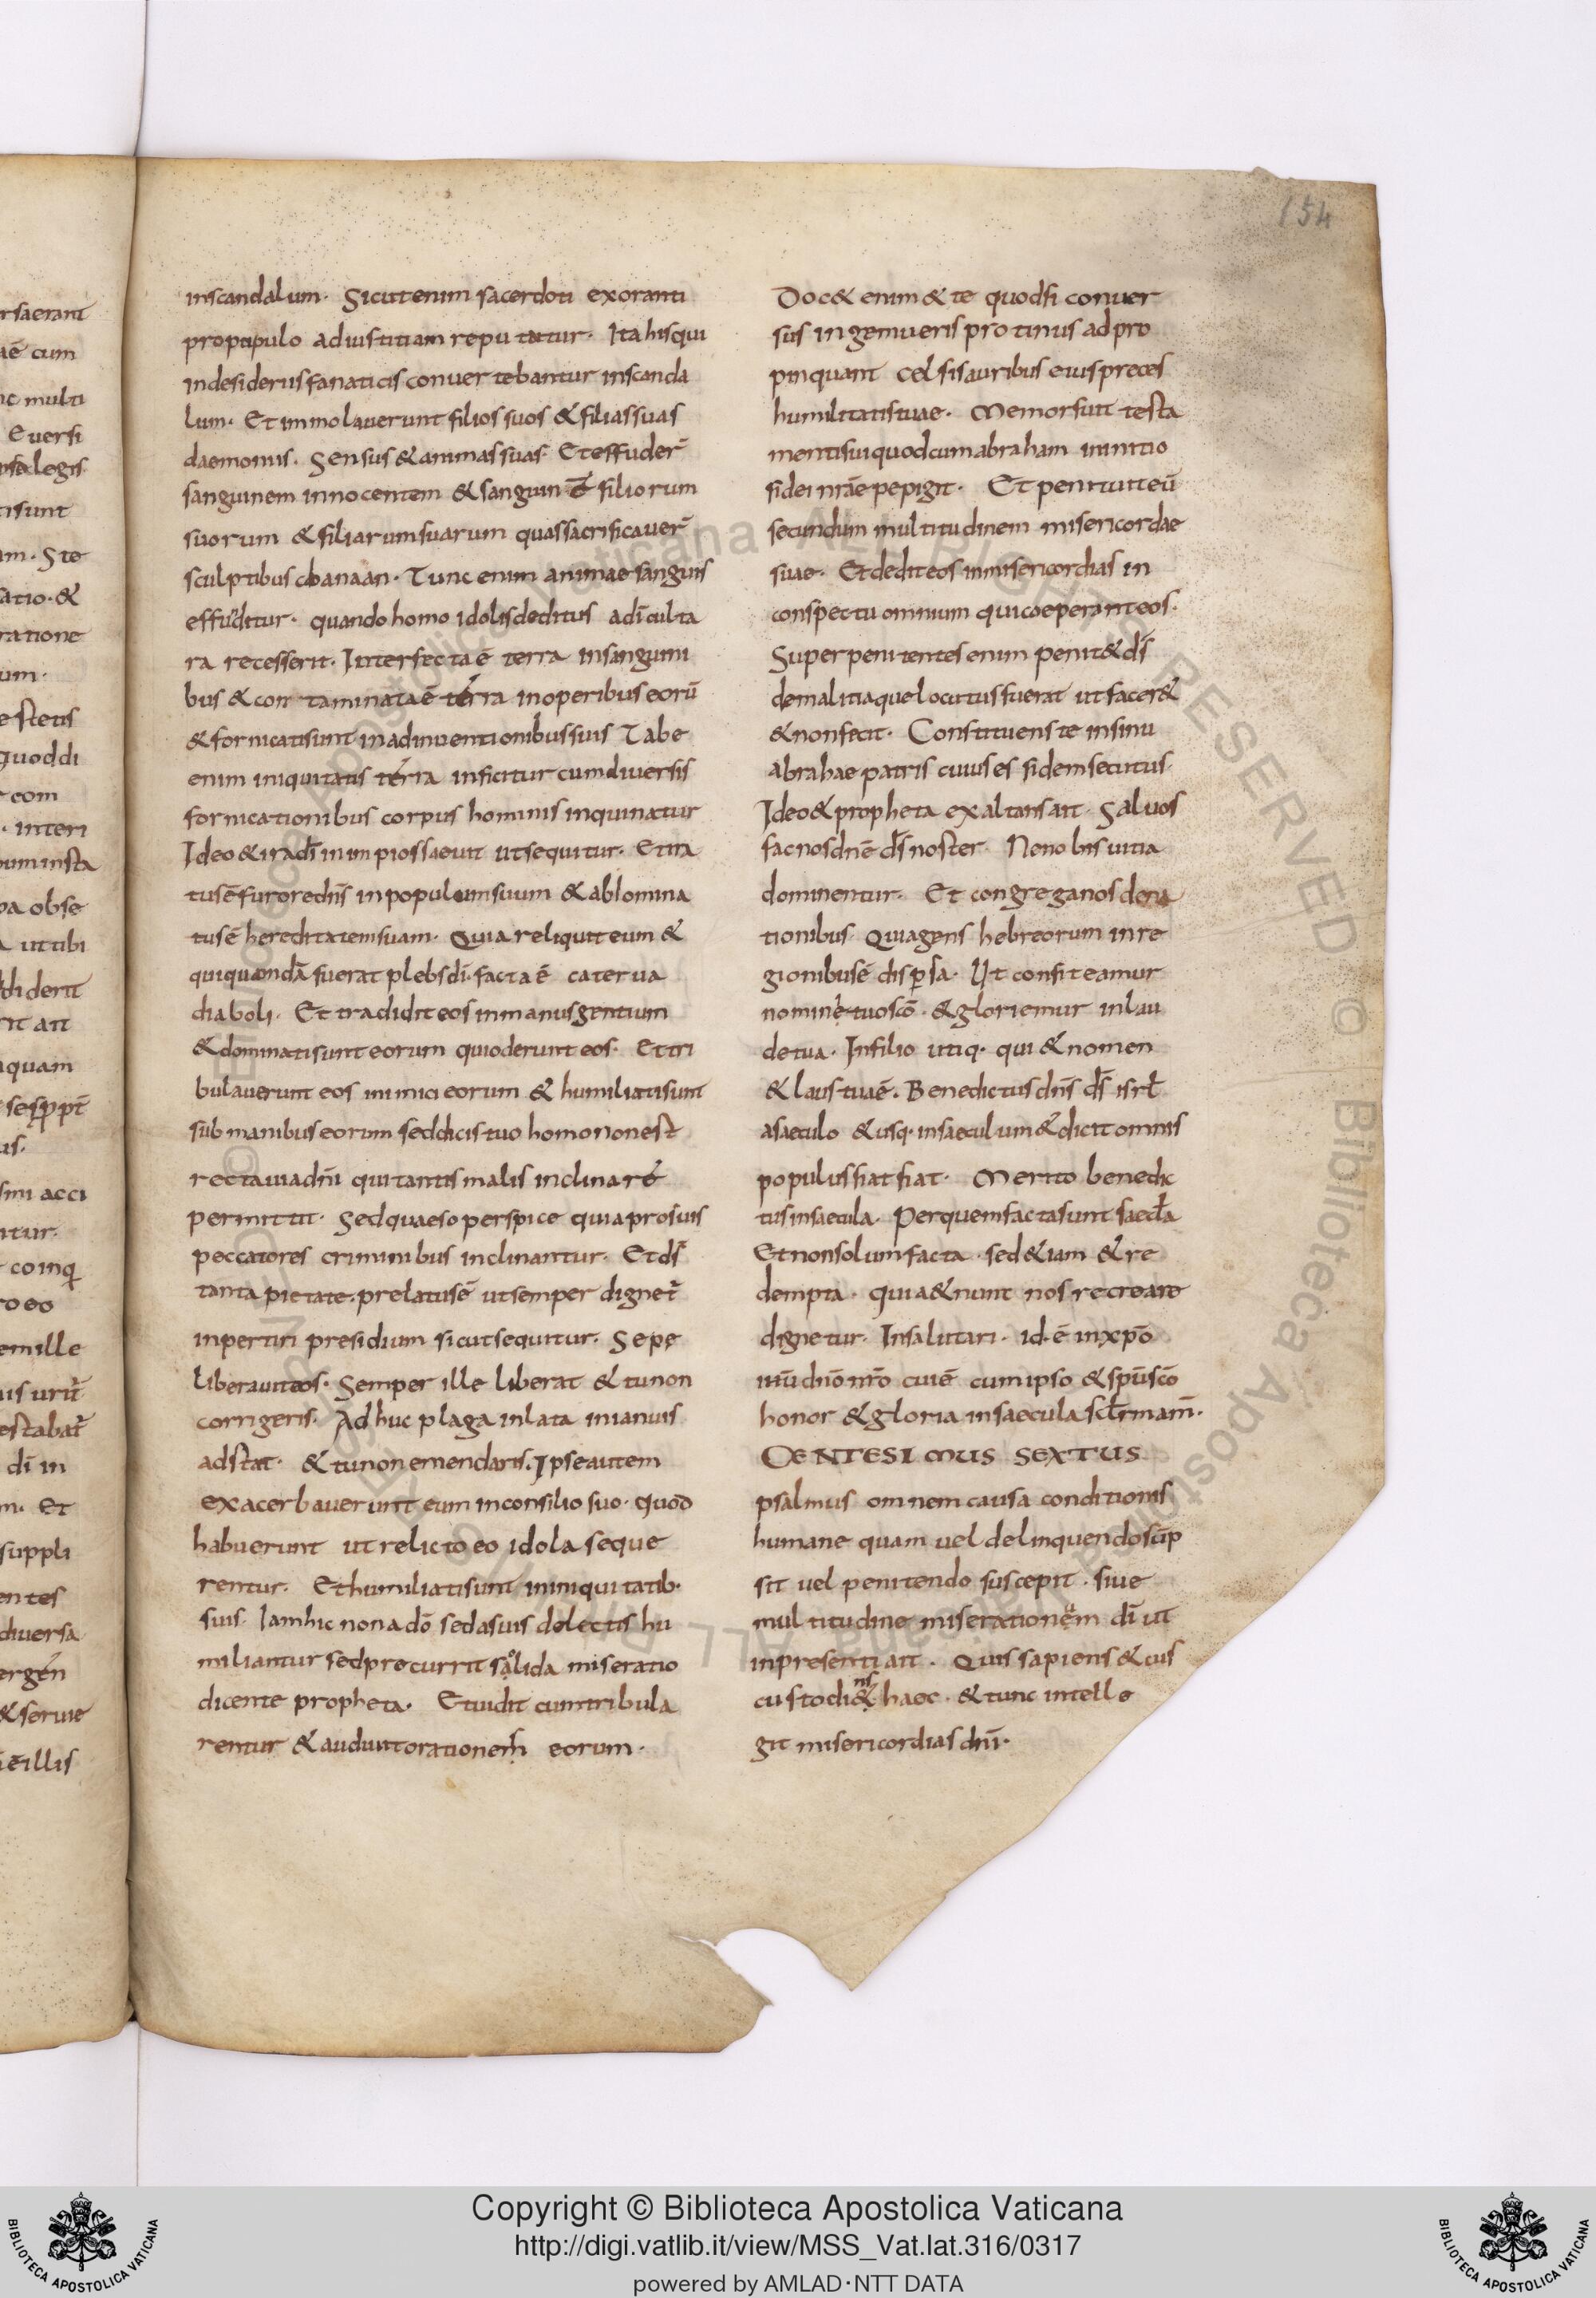 154
inscandalum. Sicut enim sacerdoti exoranti
propopulo adiustitiam reputatur. Ita hisqui
indesideriis fanaticis convertebantur inscanda
lum. Et immolaverunt filios suos & filias suas
daemoniis. Sensus & animas suas. Et effuder̄
sanguinem innocentem & sanguinē filiorum
suorum & filiarum suarum quas sacrificaver̄
sculptibus chanaan. Tunc enim animae sanguis
effunditur. quando homo idolis deditus adī cultu
ra recesserit. Interfecta ē terra insangui
bus & contaminata ē terra inoperibus eorū
& fornicati sunt in adinventionibus suis Tabe
enim iniquitatis terra inficitur cum diversis
fornicationibus corpus hominis inquinatur
Ideo & ira dī in impios saeviit ut sequitur. Et ira
tus ē furore dn̄s in populum suum & abhomina
tus ē hereditatem suam. Quia reliquit eum &
qui quondā fuerat plebs dī. facta ē caterva
diaboli. Et tradidit eos in manus gentium
& dominati sunt eorum qui oderunt eos. Et tri
bulaverunt eos inimici eorum & humiliati sunt
sub manibus eorum sed dicis tuo homo non est
recta via dn̄i qui tantis malis inclinare
permittit. Sed quaeso perspice quia pro suis
peccatores criminibus inclinantur. Et ds̄
tanta pietate. prelatus ē ut semper dignet̄
inpertiri presidium sicut sequitur. Sepe
liberavit eos. Semper ille liberat & tu non
corrigeris. Adhuc plaga inlata in ianuis
adstat. & tu non emendaris. Ipse autem
exacerbaverunt eum in consilio suo. quod
habuerunt ut relicto eo idola seque
rentur. Et humiliati sunt in iniquitatib.
suis. Iam hic non a dō sed a suis delectis hu
miliantur sed procurrit solida miseratio
dicente propheta. Et vidit cum tribula
rentur & audivit orationem eorum.
Doc& enim & te quod si conver
sus ingemueris protinus adpro
pinquant celsis auribus eius preces
humilitatis tuae. Memor fuit testa
menti sui quod cum abraham in initio
fidei nrāe pepigit. Et penituit eū
secundum multitudinem misericordae
suae. Et dedit eos in misericordias in
conspectu omnium qui coeperant eos.
Super penitentes enim penit& ds̄
de malitia que locutus fuerat ut facer&
& non fecit. Constituens te in sinu
abrahae patris cuius es fidem secutus
Ideo & propheta exaltans ait. Salvos
fac nos dn̄e ds̄ noster. Ne nobis vitia
dominentur. Et congrega nos de na
tionibus. Quia gens hebreorum in re
gionibus ē disp̄sa. Ut confiteamur
nomine tuo scō. & gloriemur in lau
de tua. In filio utiq. qui & nomen
& laus tua ē. Benedictus dn̄s ds̄ isrł
a saeculo & usq. in saeculum & dicit omnis
populus fiat fiat. Merito benedic
tus in saecula. Per quem facta sunt saecła
Et non solum facta. sed & iam & re
dempta. quia & nunt nos recreare
dignetur. In salutari. id. ē in xp̄o
iħu dn̄o nr̄o cui ē cum ipso & sp̄u scō
honor & gloria in saecula scłrm am̄.
CENTESIMUS SEXTUS
psalmus omnem causa conditionis
humane quam vel delinquendo sūp
sit vel penitendo suscepit. sive
multitudine miserationem dī ut
in presenti ait. Quis sapiens & cus
custodi& haec. & tunc intelle
git misericordias dn̄i.
Copyright © Biblioteca Apostolica Vaticana
http://digi.vatlib.it/view/MSS_Vat.lat.316/0317
powered by AMLAD·NTT DATA